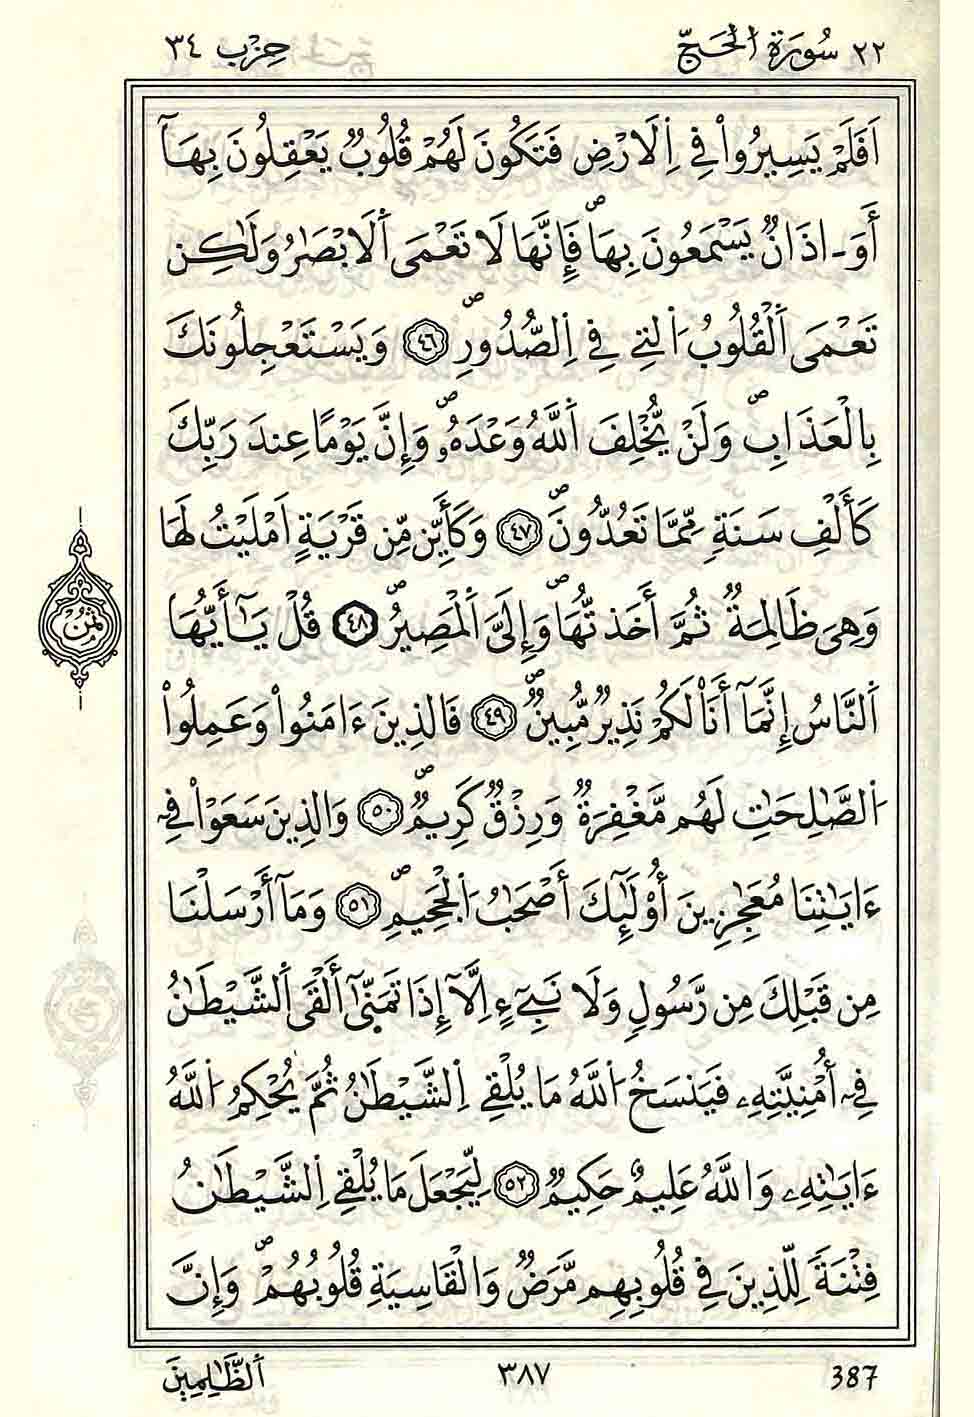 ٢٢ سُورَةُ الْحَجِّ حِزْب ٣٤
اَفَلَمْ يَسِيرُواْ فِي اِلَارْضِ فَتَكُونَ لَهُمْ قُلُوبٌ يَعْقِلُونَ بِهَآ
أَوَ ـ اذَانٌ يَسْمَعُونَ بِهَاۖ فَإِنَّهَا لَا تَعْمَى اَلَابْصَٰرُ وَلَٰكِن
تَعْمَى اَلْقُلُوبُ اُلتِے فِے اِلصُّدُورِۖ ٤٦ وَيَسْتَعْجِلُونَكَ
بِالْعَذَابِۖ وَلَنْ يُّخْلِفَ اَللَّهُ وَعْدَهُۥۖ وَإِنَّ يَوْمًا عِندَ رَبِّكَ
كَأَلْفِ سَنَةِ مِّمَّا تَعُدُّونَۖ ٤٧ وَكَأَيِّن مِّن قَرْيَةٍ اَمْلَيْتُ لَهَا
وَهِىَ ظَالِمَةٌ ثُمَّ أَخَذتُّهَاۖ وَإِلَىَّ اَلْمَصِيرُۖ ٤٨ قُلْ يَٰٓأَيُّهَا
اَلنَّاسُ إِنَّمَآ أَنَا لَكُمْ نَذِيرٌ مُّبِينٌۖ ٤٩ فَالذِينَ ءَامَنُواْ وَعَمِلُواْ
اُلصَّٰلِحَٰتِ لَهُم مَّغْفِرَةٌ وَرِزْقٌ كَرِيمٌۖ ٥٠ وَالذِينَ سَعَوْاْ فِےٓ
ءَايَٰتِنَا مُعَٰجِزِينَ أُوْلَٰٓئِكَ أَصْحَٰبُ اُلْجَحِيمِۖ ٥١ وَمَآ أَرْسَلْنَا
مِن قَبْلِكَ مِن رَّسُولٍ وَلَا نَبِےٓءٍ اِلَّآ إِذَا تَمَنَّىٰٓ أَلْقَى اَلشَّيْطَٰنُ
فِےٓ أُمْنِيَّتِهِۦ فَيَنسَخُ اُللَّهُ مَا يُلْقِے اِلشَّيْطَٰنُ ثُمَّ يُحْكِمُ اُللَّهُ
ءَايَٰتِهِۦ وَاللَّهُ عَلِيمٌ حَكِيمٌ ٥٢ لِّيَجْعَلَ مَا يُلْقِے اِلشَّيْطَٰنُ
فِتْنَةً لِّلذِينَ فِے قُلُوبِهِم مَّرَضٌ وَالْقَاسِيَةِ قُلُوبُهُمْۖ وَإِنَّ
ثمن
387 ٣٨٧ اَلظَّٰلِمِينَ